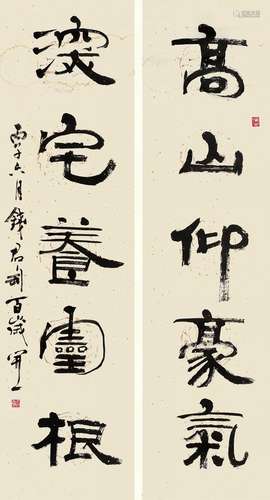 高山仰豪氣
深宅養靈根
丙子六月錢君匋百歲開一